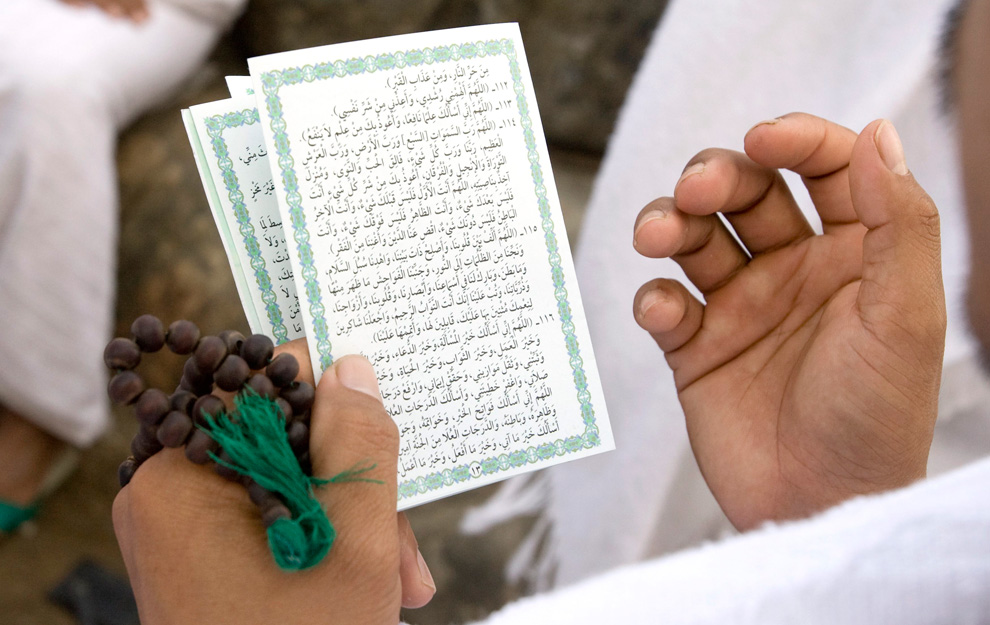 مِنْ حَرِّ النَّارِ، وَمِنْ عَذَابِ الْقَبْرِ).
١١٢ـ (اللَّهُمَّ أَلْهِمْنِي رُشْدِي، وَأَعِذْنِي مِنْ شَرِّ نَفْسِي).
١١٣ـ (اللَّهُمَّ إِنِّي أَسْأَلُكَ عِلْمًا نَافِعًا، وَأَعُوذُ بِكَ مِنْ عِلْمٍ لَا يَنْفَعُ)
١١٤ـ (اللَّهُمَّ رَبَّ السَّمَوَاتِ [السَّبْعِ] وَرَبَّ الْأَرْضِ، وَرَبَّ الْعَرْشِ
الْعَظِيمِ، رَبَّنَا وَرَبَّ كُلِّ شَيْءٍ، فَالِقَ الْحَبِّ وَالنَّوَى، وَمُنْزِلَ
التَّوْرَاةِ وَالْإِنْجِيلِ وَالْفُرْقَانِ، أَعُوذُ بِكَ مِنْ شَرِّ كُلِّ شَيْءٍ أَنْتَ
آخِذٌ بِنَاصِيَتِهِ، اللَّهُمَّ أَنْتَ الْأَوَّلُ فَلَيْسَ قَبْلَكَ شَيْءٌ، وَأَنْتَ الْآخِرُ
فَلَيْسَ بَعْدَكَ شَيْءٌ، وَأَنْتَ الظَّاهِرُ فَلَيْسَ فَوْقَكَ شَيْءٌ، وَأَنْتَ
الْبَاطِنُ فَلَيْسَ دُونَكَ شَيْءٌ، اقْضِ عَنَّا الدَّيْنَ وَأَغْنِنَا مِنَ الْفَقْرِ)
١١٥ـ (اللَّهُمَّ أَلِّفْ بَيْنَ قُلُوبِنَا، وَأَصْلِحْ ذَاتَ بَيْنِنَا، وَاهْدِنَا سُبُلَ السَّلَامِ،
وَنَجِّنَا مِنَ الظُّلُمَاتِ إِلَى النُّورِ، وَجَنِّبْنَا الْفَوَاحِشَ مَا ظَهَرَ مِنْهَا
وَمَا بَطَنَ، وَبَارِكْ لَنَا فِي أَسْمَاعِنَا، وَأَبْصَارِنَا، وَقُلُوبِنَا، وَأَزْوَاجِنَا،
وَذُرِّيَّاتِنَا، وَتُبْ عَلَيْنَا إِنَّكَ أَنْتَ التَّوَّابُ الرَّحِيمُ، وَاجْعَلْنَا شَاكِرِينَ
لِنِعَمِكَ مُثْنِينَ بِهَا عَلَيْكَ، قَابِلِينَ لَهَا، وَأَتْمِمْهَا عَلَيْنَا).
١١٦ـ (اللَّهُمَّ إِنِّي أَسْأَلُكَ خَيْرَ الْمَسْأَلَةِ، وَخَيْرَ الدُّعَاءِ، وَخَيْرَ
وَخَيْرَ الْعَمَلِ، وَخَيْرَ الثَّوَابِ، وَخَيْرَ الْحَيَاةِ،
وَثَبِّتْنِي، وَثَقِّلْ مَوَازِينِي، وَحَقِّقْ إِيمَانِي، وَارْفَعْ
صَلَاتِي، وَاغْفِرْ خَطِيئَتِي، وَأَسْأَلُكَ الدَّرَجَاتِ
اللَّهُمَّ إِنِّي أَسْأَلُكَ فَوَاتِحَ الْخَيْرِ، وَخَوَاتِمَهُ،
وَظَاهِرَهُ، وَبَاطِنَهُ، وَالدَّرَجَاتِ الْعُلَا مِنَ الْجَنَّةِ
أَسْأَلُكَ خَيْرَ مَا آتِي، وَخَيْرَ مَا أَفْعَلُ، وَخَيْرَ مَا أَعْمَلُ،
١٣